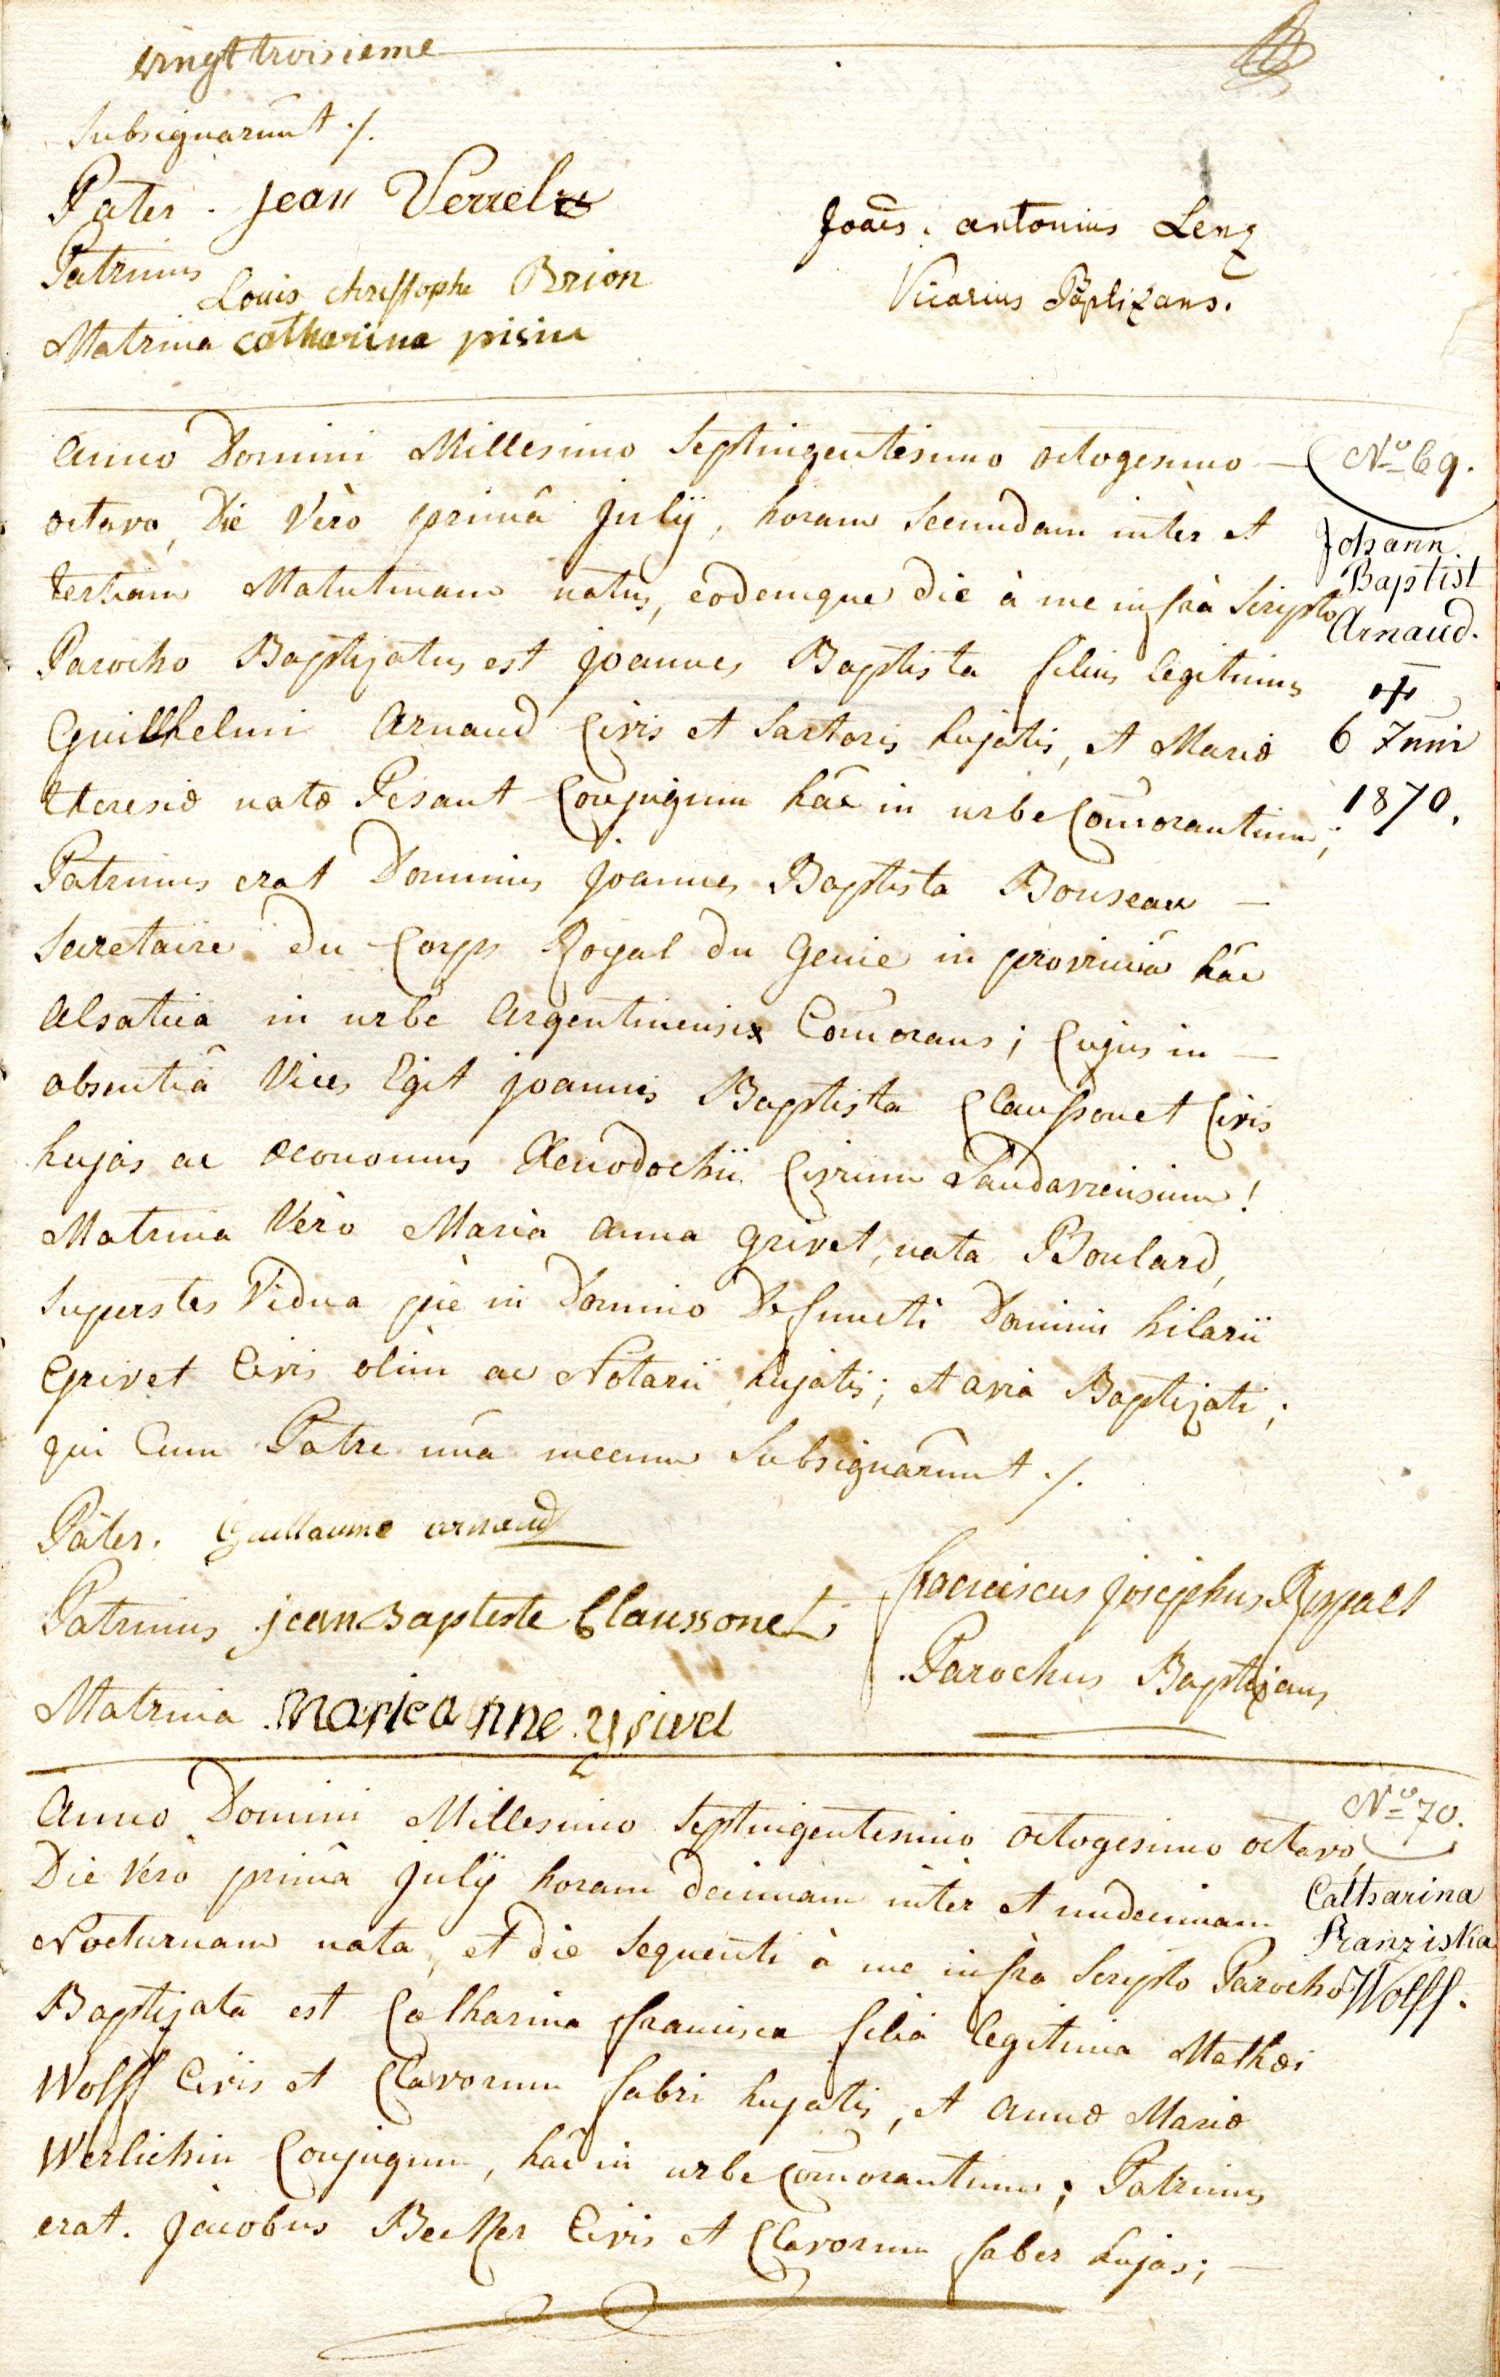 vingt troisieme
Subsignarunt ./.
Pater. Jean Verrel
Patrinus Louis christophe Brion
Matrina catharina pisin
Joães. antonius Lenz
Vicarius Baptizans.
Anno Domini Millesimo Septingentesimo octogesimo —
octavo, Die Vèro primâ Julÿ, horam Secundam inter et
tertiam Matutinam natus, eodemque die à me infrà Scripto
Parocho Baptizatus est Joannes Baptista filius legitimus
Guillhelmi Arnaud Civis et Sartoris hujatis, et Mariæ
theresiæ natæ Pesant Conjugum hâc in urbe Com̃orantium;
Patrinus erat Dominus Joannes Baptista Bouseau —
Secretaire du Corps Royal du Genie in provinciâ hâc
Alsatiâ in urbe Argentinensi Com̃orans; Cujus in —
absentiâ Vices Egit Joannes Baptista Claussonet Civis
hujas ac œconomus Xenodochii Civium Landaviensium!
Matrina Vèro Maria Anna Grivet, nata Boulard,
Superstes Vidua piè in Domino Defuncti Domini hilarii
Grivet Civis olim ac Notarii hujatis; et avia Baptizati;
qui Cum Patre unâ mecum Subsignarunt ./.
Pater. Guillaume arnaud
Patrinus jean Baptiste Claussonet
Matrina Marie anne grivel
Franciscus Josephus
Parochus Baptizans
No 69.
Johann
Baptist
Arnaud.
†
6 Juni
1870.
Anno Domini Millesimo Septingentesimo octogesimo octavo,
Die Vèro primâ Julÿ horam decimam inter et undecimam
Nocturnam nata, et die Sequenti à me infra Scripto Parocho
Baptizata est Catharina francisca filia legitima Mathæi
Wolff Civis et Clavorum fabri hujatis, et Annæ Mariæ
Werlichin Conjugum, hâc in urbe Com̃orantium; Patrinus
erat. Jacobus Becker Civis et Clavorum faber hujas; —
No 70.
Catharina
Franziska
Wolff.